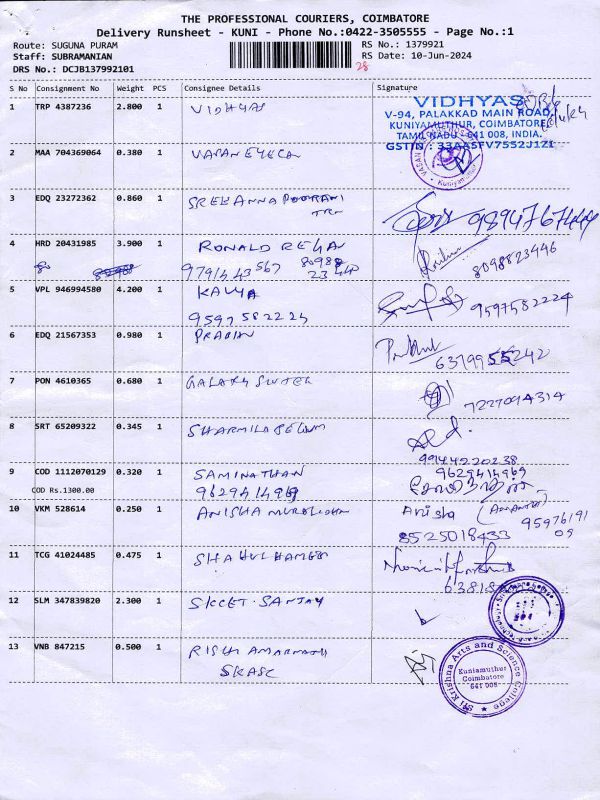 THE PROFESSIONAL COURIERS, COIMBATORE
Delivery Runsheet - KUNI - Phone No.:0422-3505555 - Page No.:1
Route: SUGUNA PURAM
RS No.: 1379921
Staff: SUBRAMANIAN
RS Date: 10-Jun-2024
DRS No.: DCJB137992101
28
S No Consignment No Weight PCS Consignee Details Signature
1 TRP 4387236 2.800 1 VIDHYAS
VIDHYAS
V-94, PALAKKAD MAIN ROAD,
KUNIYAMUTHUR, COIMBATORE,
TAMIL NADU - 641 008, INDIA.
GSTIN : 33AASFV7552J1ZI
2 MAA 704369064 0.380 1 VASAN EYECA
Kuniyamuthur
3 EDQ 23272362 0.860 1 SREE ANNAPOORANI
9894767444
4 HRD 20431985 3.900 1 RONALD REGAN
9791443567 80988 23440
8098823446
5 VPL 946994580 4.200 1 KAVYA
9597582224 9597582224
6 EDQ 21567353 0.980 1 PRABIAN
7 PON 4610365 0.680 1 GALAXY
7227094314
8 SRT 65209322 0.345 1 SHARMILA BEGUM
9944220238
9 COD 1112070129 0.320 1 SAMINATHAN 9629414969
COD Rs.1300.00 9629414969
10 VKM 528614 0.250 1 ANISHA MURALIDHARAN Anisha
8525018433 95976191 09
11 TCG 41024485 0.475 1 SHAHUL HAMEED
12 SLM 347839820 2.300 1 SKCET SANJAY
13 VNB 847215 0.500 1 RISHI AMARNATH
SKASC
Sri Krishna Arts and Science College
Kuniamuthur
Coimbatore
641 008